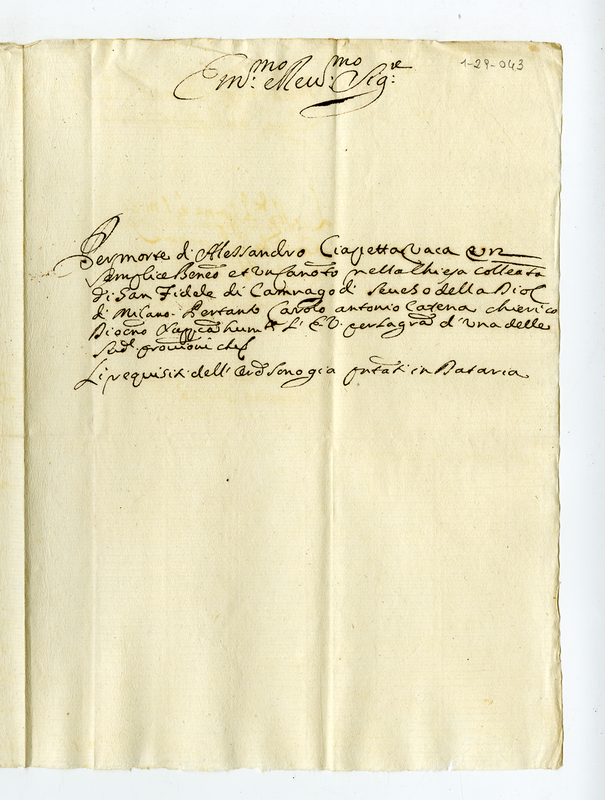 1-29-043
Em.mo e Rev.mo Sig.re
Per morte di Alessandro Ciapetta vaca un
semplice Benεo et un Canoto nella Chiesa Colleata
di San Fidele di Camnago di Seveso della Diol
di Milano. Pertanto Carolo Antonio Catena chierico
Diocno supca humte L' E. V. per la gra d'una delle
sud. provisioni che
Li requisiti dell' Ord sono gia pntati in Dataria